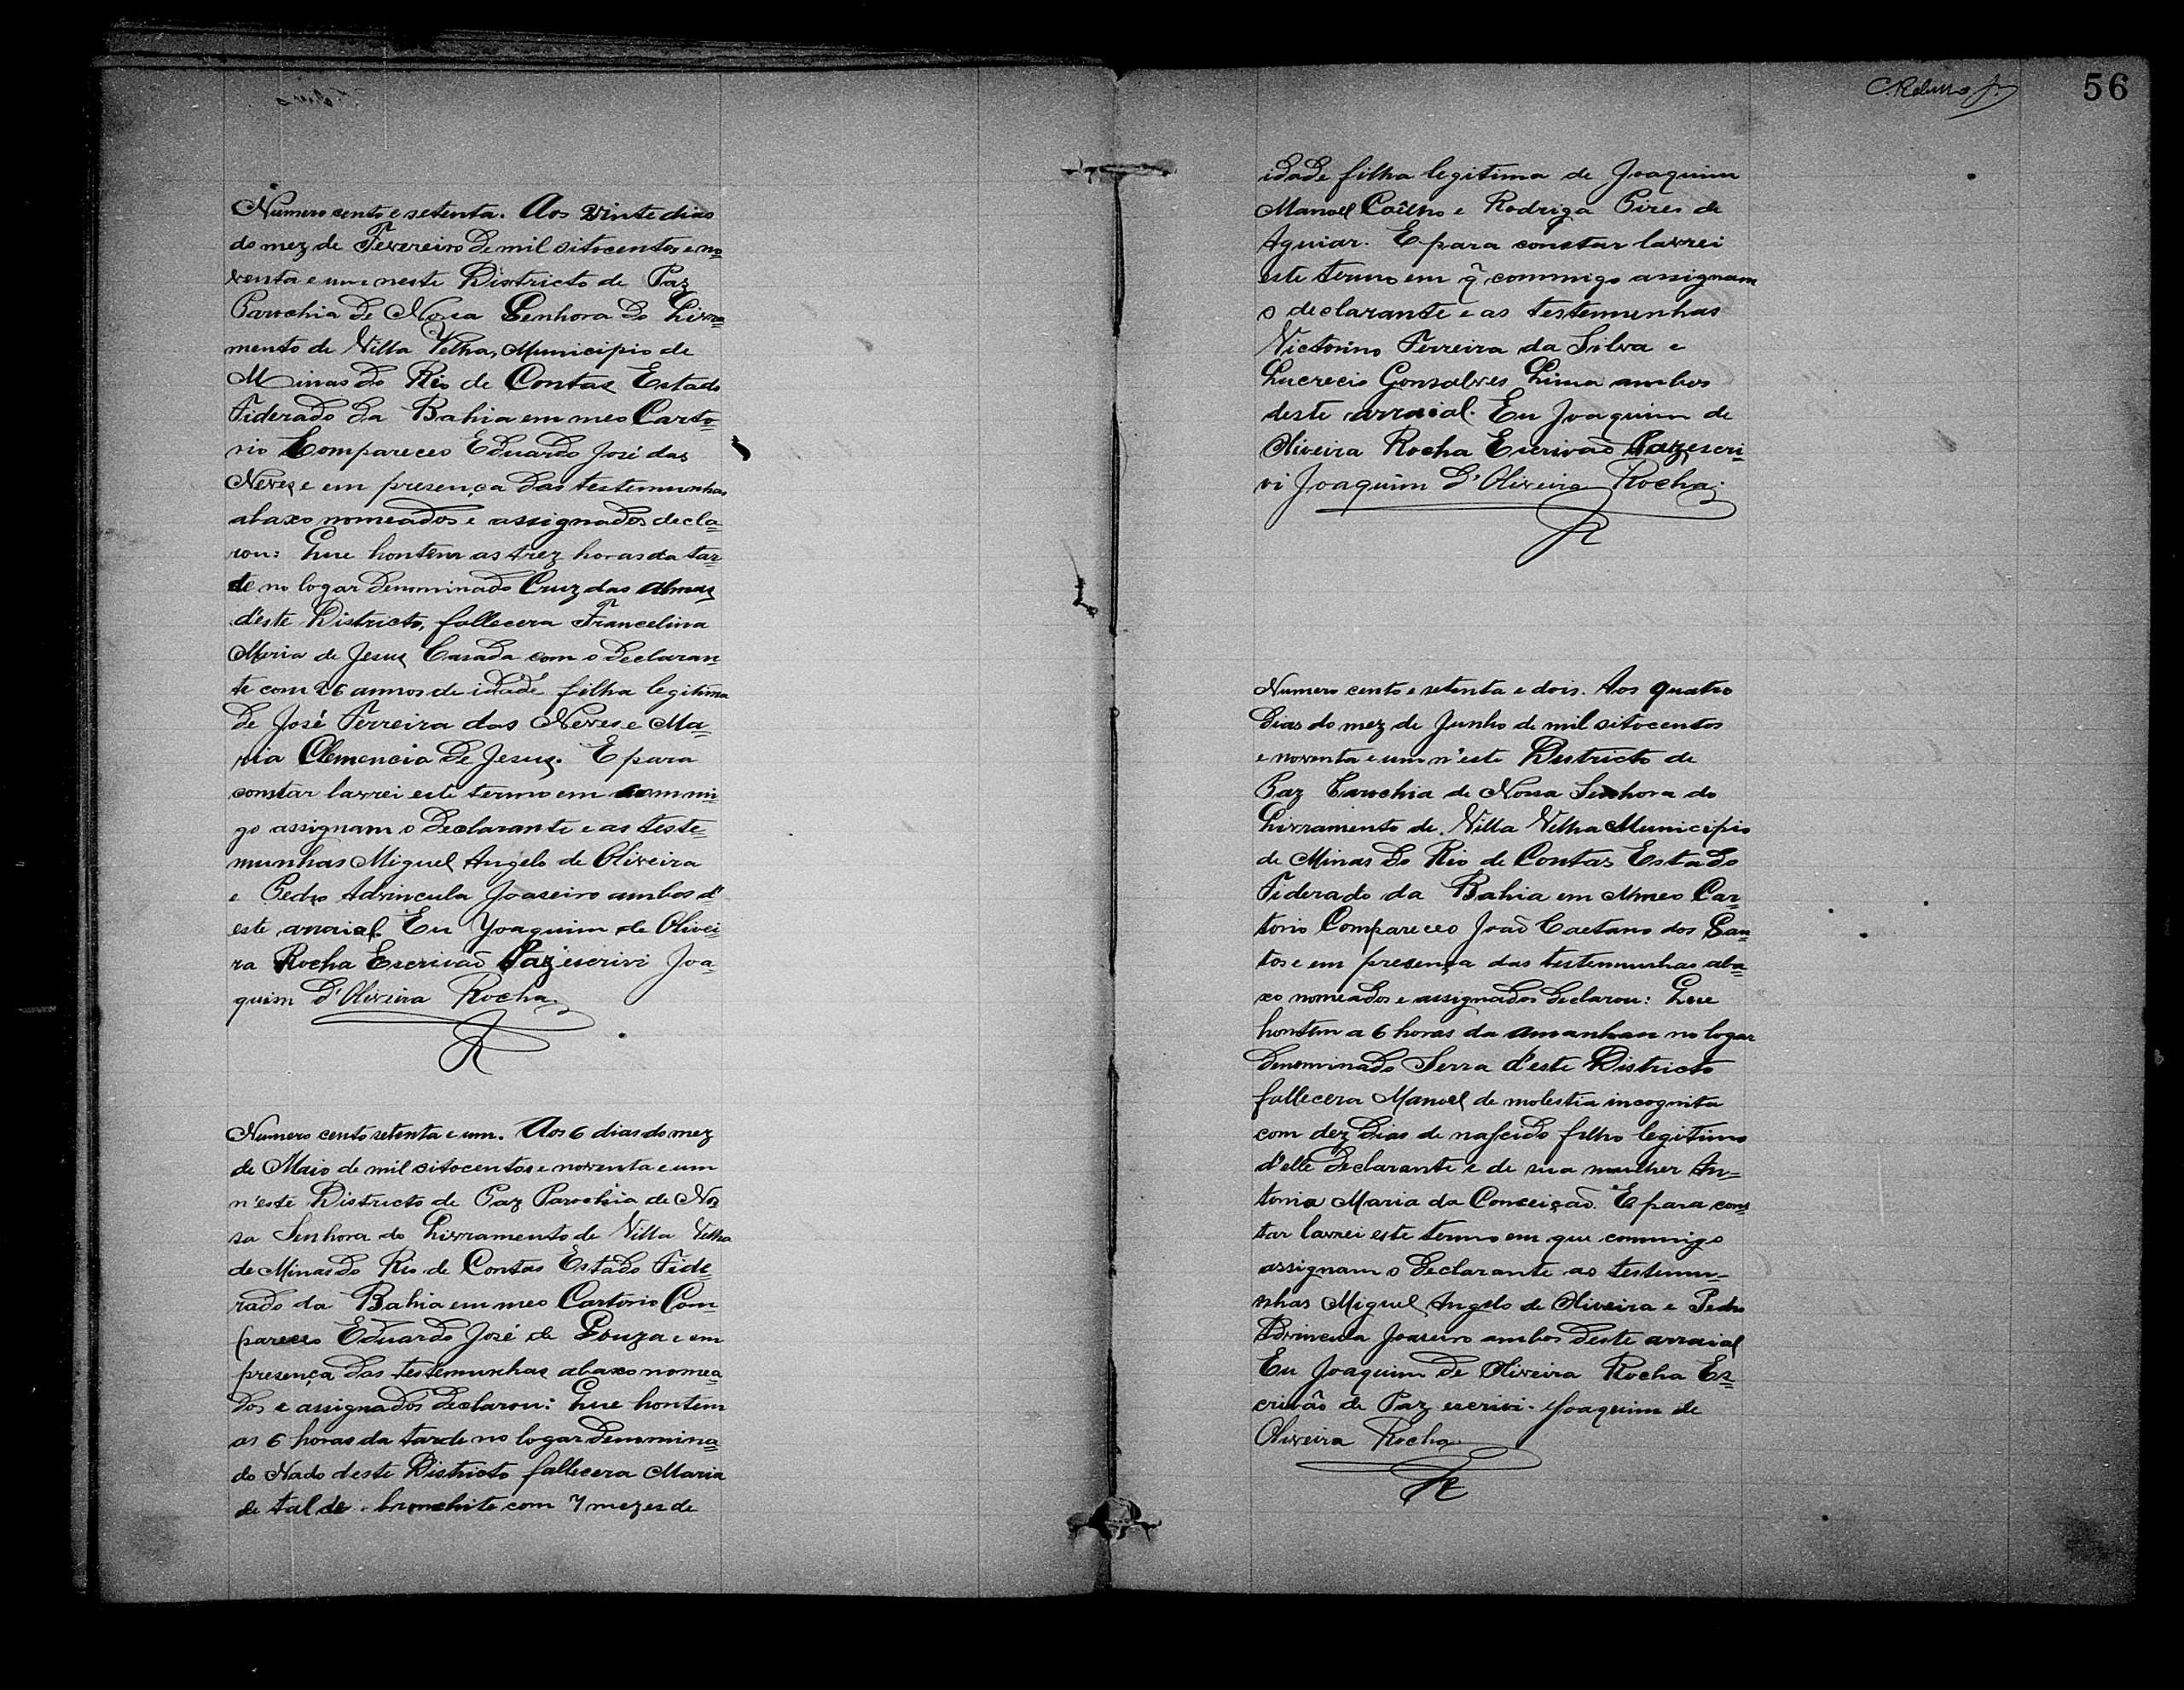 Numero cento e setenta. Aos vinte dias
do mez de Fevereiro de mil oitocentos e no=
venta e um neste Districto de Paz
Parochia de Nossa Senhora do Livra=
mento de Villa Velha, Municipio de
Minas do Rio de Contas Estado
Fiderado da Bahia em meo Carto=
rio Compareceo Eduardo José das
Neves e em presença das testemunhas
abaxo nomeados e assignados decla=
rou: Que hontem as trez horas da tar=
de no logar denominado Cruz das Almas
d'este Districto, fallecera Francelina
Maria de Jesus Casada com o declaran
te com 26 annos de idade filha legitima
de José Ferreira das Neves e Ma=
ria Clemencia de Jesus. E para
constar lavrei este termo em commi=
go assignam o declarante e as teste=
munhas Miguel Angelo de Oliveira
e Pedro Advincula Joaseiro ambos d'
este arraial. Eu Joaquim de Olivei=
ra Rocha Escrivaõ Paz escrivi Joa=
quim d'Oliveira Rocha.
Numero cento setenta e um. Aos 6 dias do mez
de Maio de mil oitocentos e noventa e um
n'este Districto de Paz Parochia de Nos=
sa Senhora do Livramento de Villa Velha
de Minas do Rio de Contas Estado Fide=
rado da Bahia em meo Cartorio Com
pareceo Eduardo José de Souza e em
presença das testemunhas abaxo nomea=
dos e assignados declarou: Que hontem
as 6 horas da tarde no logar denomina=
do Nado deste Districto fallecera Maria
de tal de bronchite com 7 mezes de
56
idade filha legitima de Joaquim
Manoel Coêlho e Rodriga Pires de
Aguiar. E para constar lavrei
este termo em q̃ commigo assignam
o declarante e as testemunhas
Victorino Ferreira da Silva e
Lucrecio Gonsalves Lima ambos
deste arraial. Eu Joaquim de
Oliveira Rocha Escrivaõ Paz escri=
vi Joaquim d'Oliveira Rocha.
Numero cento e setenta e dois. Aos quatro
dias do mez de Junho de mil oitocentos
e noventa e um n'este Destricto de
Paz Parochia de Nossa Senhora do
Livramento de Villa Velha Municipio
de Minas do Rio de Contas Estado
Fiderado da Bahia em meo Car=
torio Compareceo João Caetano dos San=
tos e em presença das testemunhas aba=
xo nomeados e assignados declarou: Que
hontem a 6 horas da amanhan no logar
denominado Serra d'este Districto
fallecera Manoel de molestia incognita
com dez dias de nascido filho legitimo
d'elle declarante e de sua mulher An=
tonia Maria da Conceição. E para cons=
tar lavrei este termo em que commigo
assignam o declarante as testemu=
nhas Miguel Angelo de Oliveira e Pedro
Advincula Joaseiro ambos deste arraial
Eu Joaquim de Oliveira Rocha Es=
crivão de Paz escrivi. Joaquim de
Oliveira Rocha